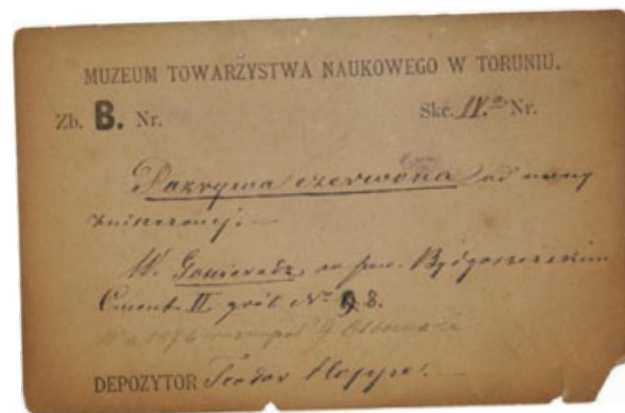 MUZEUM TOWARZYSTWA NAUKOWEGO W TORUNIU.
Zb. B. Nr. Skc. IV.a Nr.
Pokrywa czerwona od urny
zniszczonej.—
W. Gonieradz, w pow. Bydgoszczskim
Cment. II grób No 8.
W r. 1876 G. Ossowski
DEPOZYTOR Teodor Hoppe.